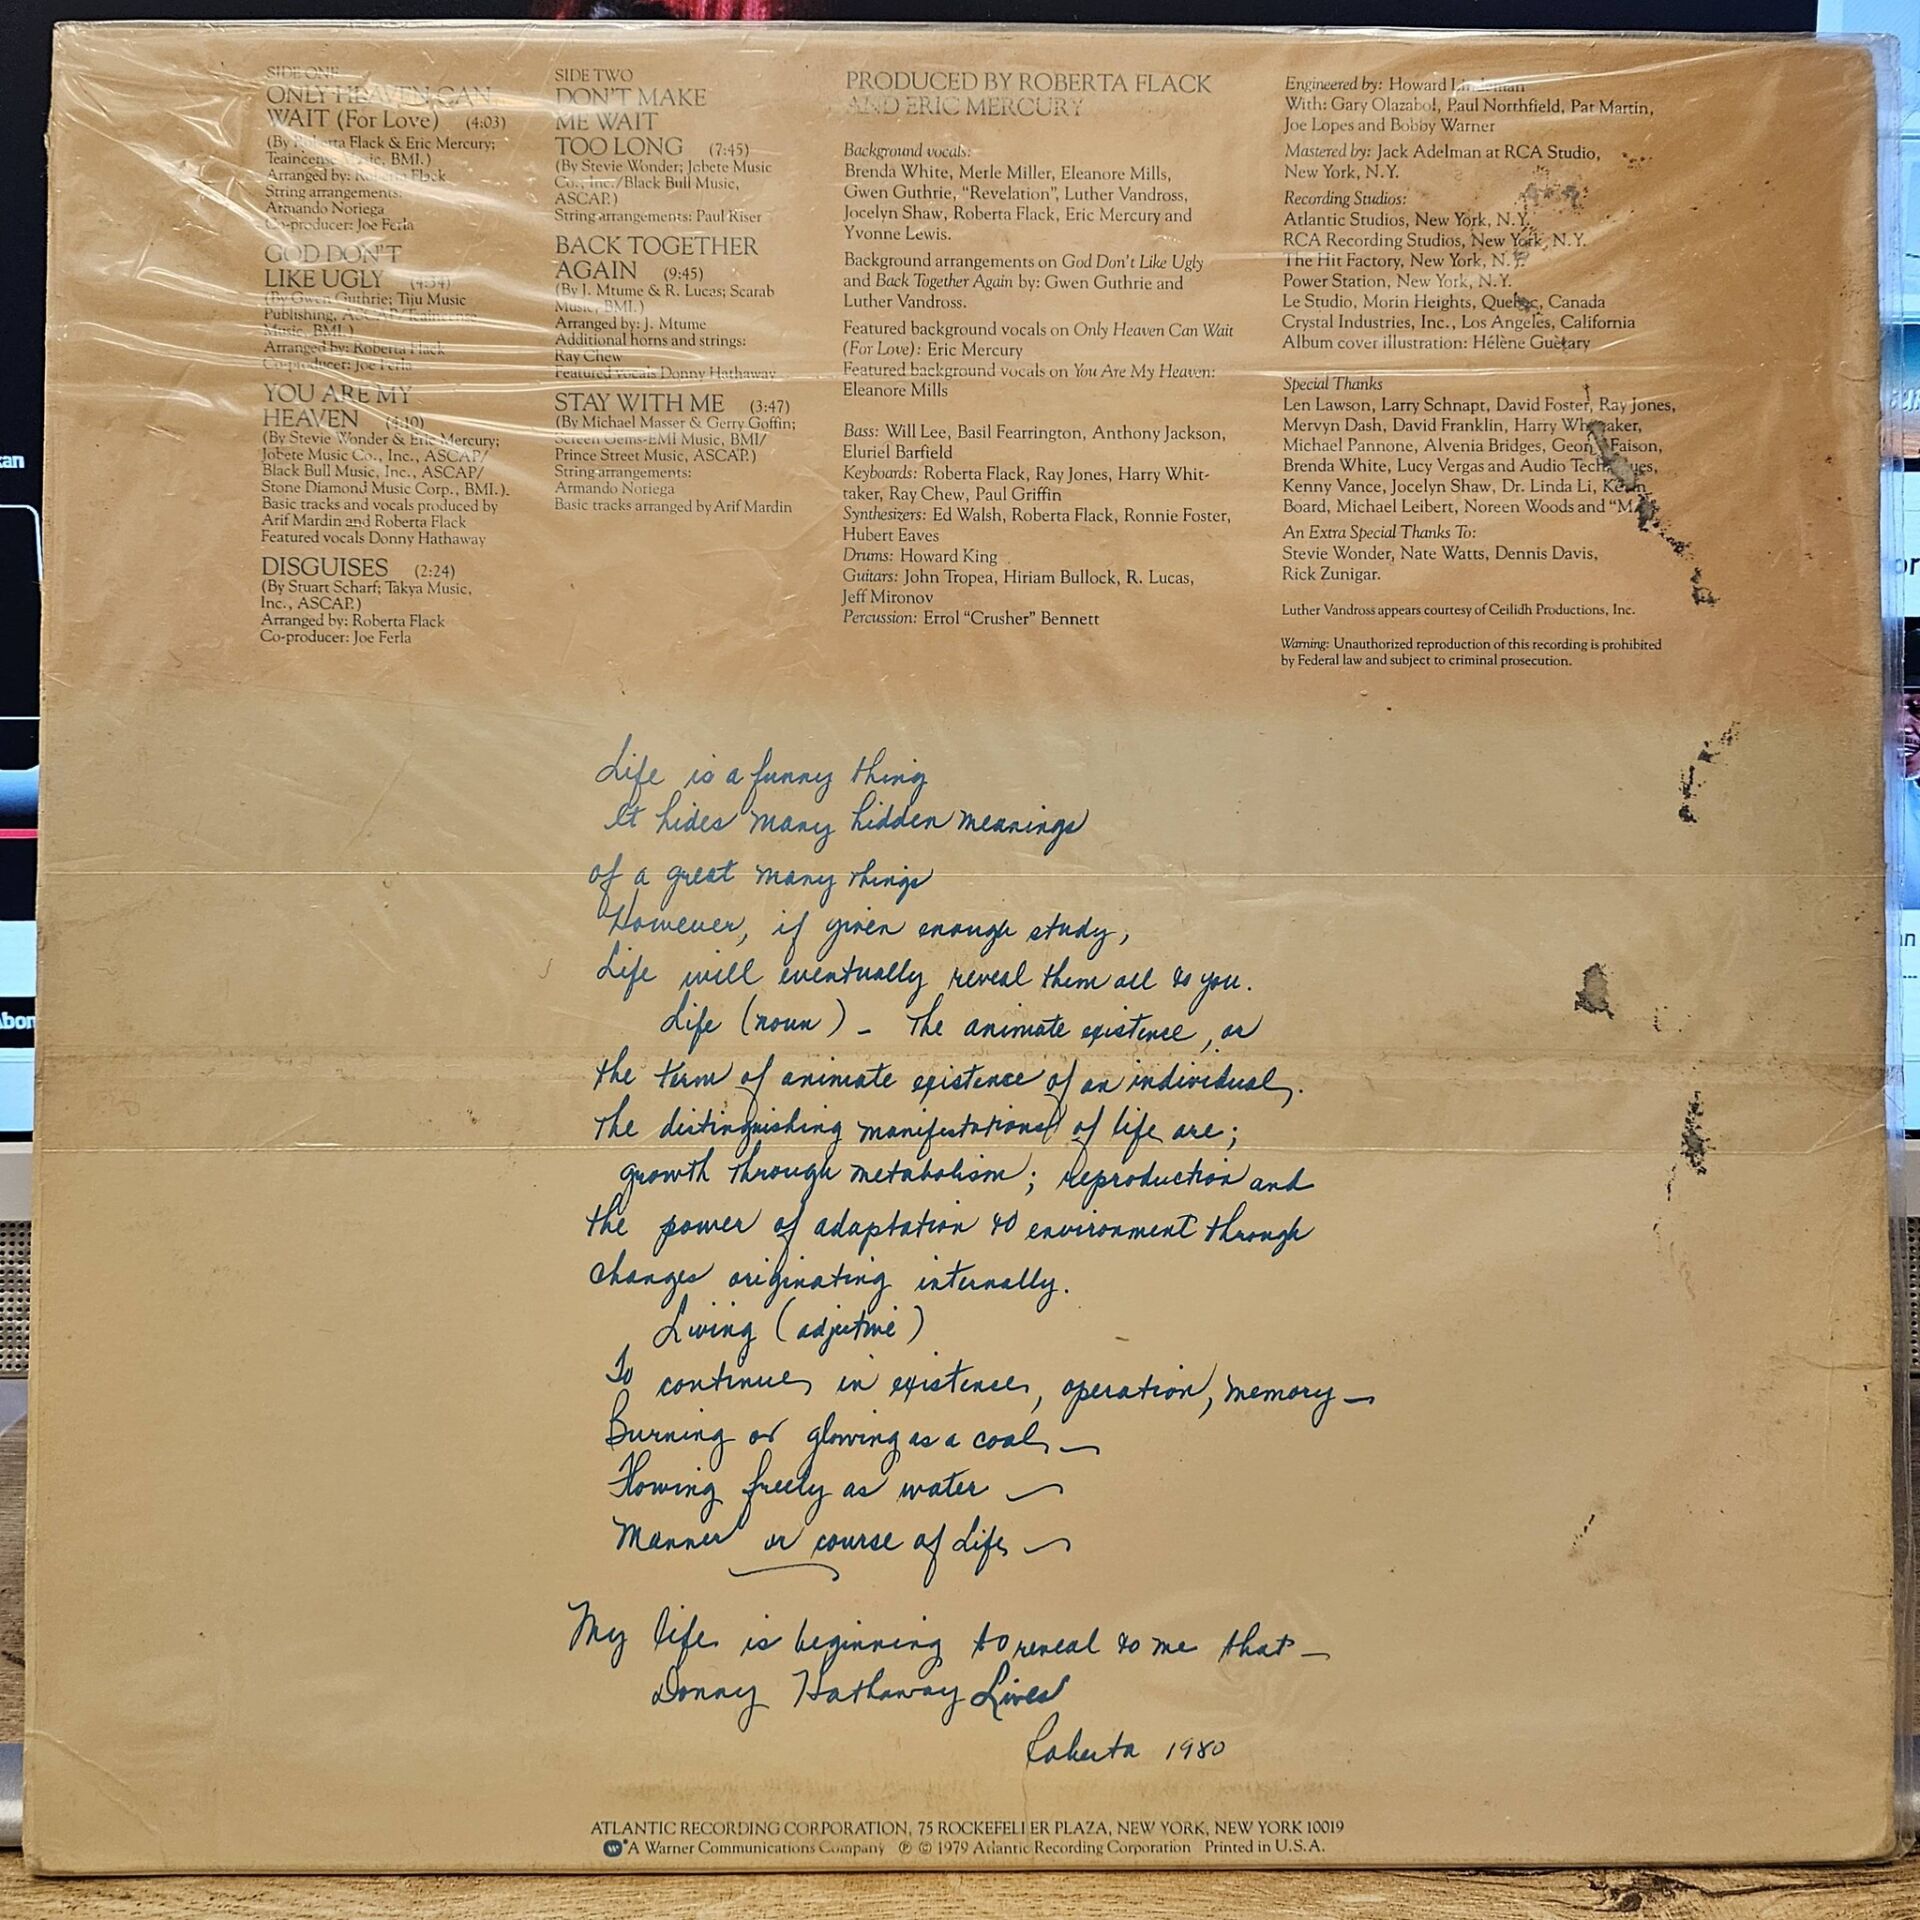 SIDE ONE
ONLY HEAVEN CAN
WAIT (For Love) (4:03)
(By Roberta Flack & Eric Mercury;
Teaincense Music, BMI.)
Arranged by: Roberta Flack
String arrangements:
Armando Noriega
Co-producer: Joe Ferla
GOD DON'T
LIKE UGLY (4:34)
(By Gwen Guthrie; Tiju Music
Publishing, ASCAP/Teaincense
Music, BMI.)
Arranged by: Roberta Flack
Co-producer: Joe Ferla
YOU ARE MY
HEAVEN (4:10)
(By Stevie Wonder & Eric Mercury;
Jobete Music Co., Inc., ASCAP/
Black Bull Music, Inc., ASCAP/
Stone Diamond Music Corp., BMI.).
Basic tracks and vocals produced by
Arif Mardin and Roberta Flack
Featured vocals Donny Hathaway
DISGUISES (2:24)
(By Stuart Scharf; Takya Music,
Inc., ASCAP.)
Arranged by: Roberta Flack
Co-producer: Joe Ferla
SIDE TWO
DON'T MAKE
ME WAIT
TOO LONG (7:45)
(By Stevie Wonder; Jobete Music
Co., Inc./Black Bull Music,
ASCAP.)
String arrangements: Paul Riser
BACK TOGETHER
AGAIN (9:45)
(By J. Mtume & R. Lucas; Scarab
Music, BMI.)
Arranged by: J. Mtume
Additional horns and strings:
Ray Chew
Featured vocals Donny Hathaway
STAY WITH ME (3:47)
(By Michael Masser & Gerry Goffin;
Screen Gems-EMI Music, BMI/
Prince Street Music, ASCAP.)
String arrangements:
Armando Noriega
Basic tracks arranged by Arif Mardin
PRODUCED BY ROBERTA FLACK
AND ERIC MERCURY
Background vocals:
Brenda White, Merle Miller, Eleanore Mills,
Gwen Guthrie, "Revelation", Luther Vandross,
Jocelyn Shaw, Roberta Flack, Eric Mercury and
Yvonne Lewis.
Background arrangements on God Don't Like Ugly
and Back Together Again by: Gwen Guthrie and
Luther Vandross.
Featured background vocals on Only Heaven Can Wait
(For Love): Eric Mercury
Featured background vocals on You Are My Heaven:
Eleanore Mills
Bass: Will Lee, Basil Fearrington, Anthony Jackson,
Eluriel Barfield
Keyboards: Roberta Flack, Ray Jones, Harry Whit-
taker, Ray Chew, Paul Griffin
Synthesizers: Ed Walsh, Roberta Flack, Ronnie Foster,
Hubert Eaves
Drums: Howard King
Guitars: John Tropea, Hiriam Bullock, R. Lucas,
Jeff Mironov
Percussion: Errol "Crusher" Bennett
Engineered by: Howard Lindeman
With: Gary Olazabol, Paul Northfield, Pat Martin,
Joe Lopes and Bobby Warner
Mastered by: Jack Adelman at RCA Studio,
New York, N.Y.
Recording Studios:
Atlantic Studios, New York, N.Y.
RCA Recording Studios, New York, N.Y.
The Hit Factory, New York, N.Y.
Power Station, New York, N.Y.
Le Studio, Morin Heights, Quebec, Canada
Crystal Industries, Inc., Los Angeles, California
Album cover illustration: Hélène Guétary
Special Thanks
Len Lawson, Larry Schnapt, David Foster, Ray Jones,
Mervyn Dash, David Franklin, Harry Whittaker,
Michael Pannone, Alvenia Bridges, Faison,
Brenda White, Lucy Vergas and Audio Techniques,
Kenny Vance, Jocelyn Shaw, Dr. Linda Li,
Board, Michael Leibert, Noreen Woods and
An Extra Special Thanks To:
Stevie Wonder, Nate Watts, Dennis Davis,
Rick Zunigar.
Luther Vandross appears courtesy of Ceilidh Productions, Inc.
Warning: Unauthorized reproduction of this recording is prohibited
by Federal law and subject to criminal prosecution.
Life is a funny thing
It hides many hidden meanings
of a great many things
However, if given enough study,
Life will eventually reveal them all to you.
Life (noun) – The animate existence, or
the term of animate existence of an individual.
The distinguishing manifestations of life are;
growth through metabolism; reproduction and
the power of adaptation to environment through
changes originating internally.
Living (adjective)
To continue in existence, operation, memory –
Burning or glowing as a coal –
Flowing freely as water –
Manner or course of Life –
My life is beginning to reveal to me that –
Donny Hathaway Lives
Roberta 1980
ATLANTIC RECORDING CORPORATION, 75 ROCKEFELLER PLAZA, NEW YORK, NEW YORK 10019
A Warner Communications Company ℗ © 1979 Atlantic Recording Corporation Printed in U.S.A.